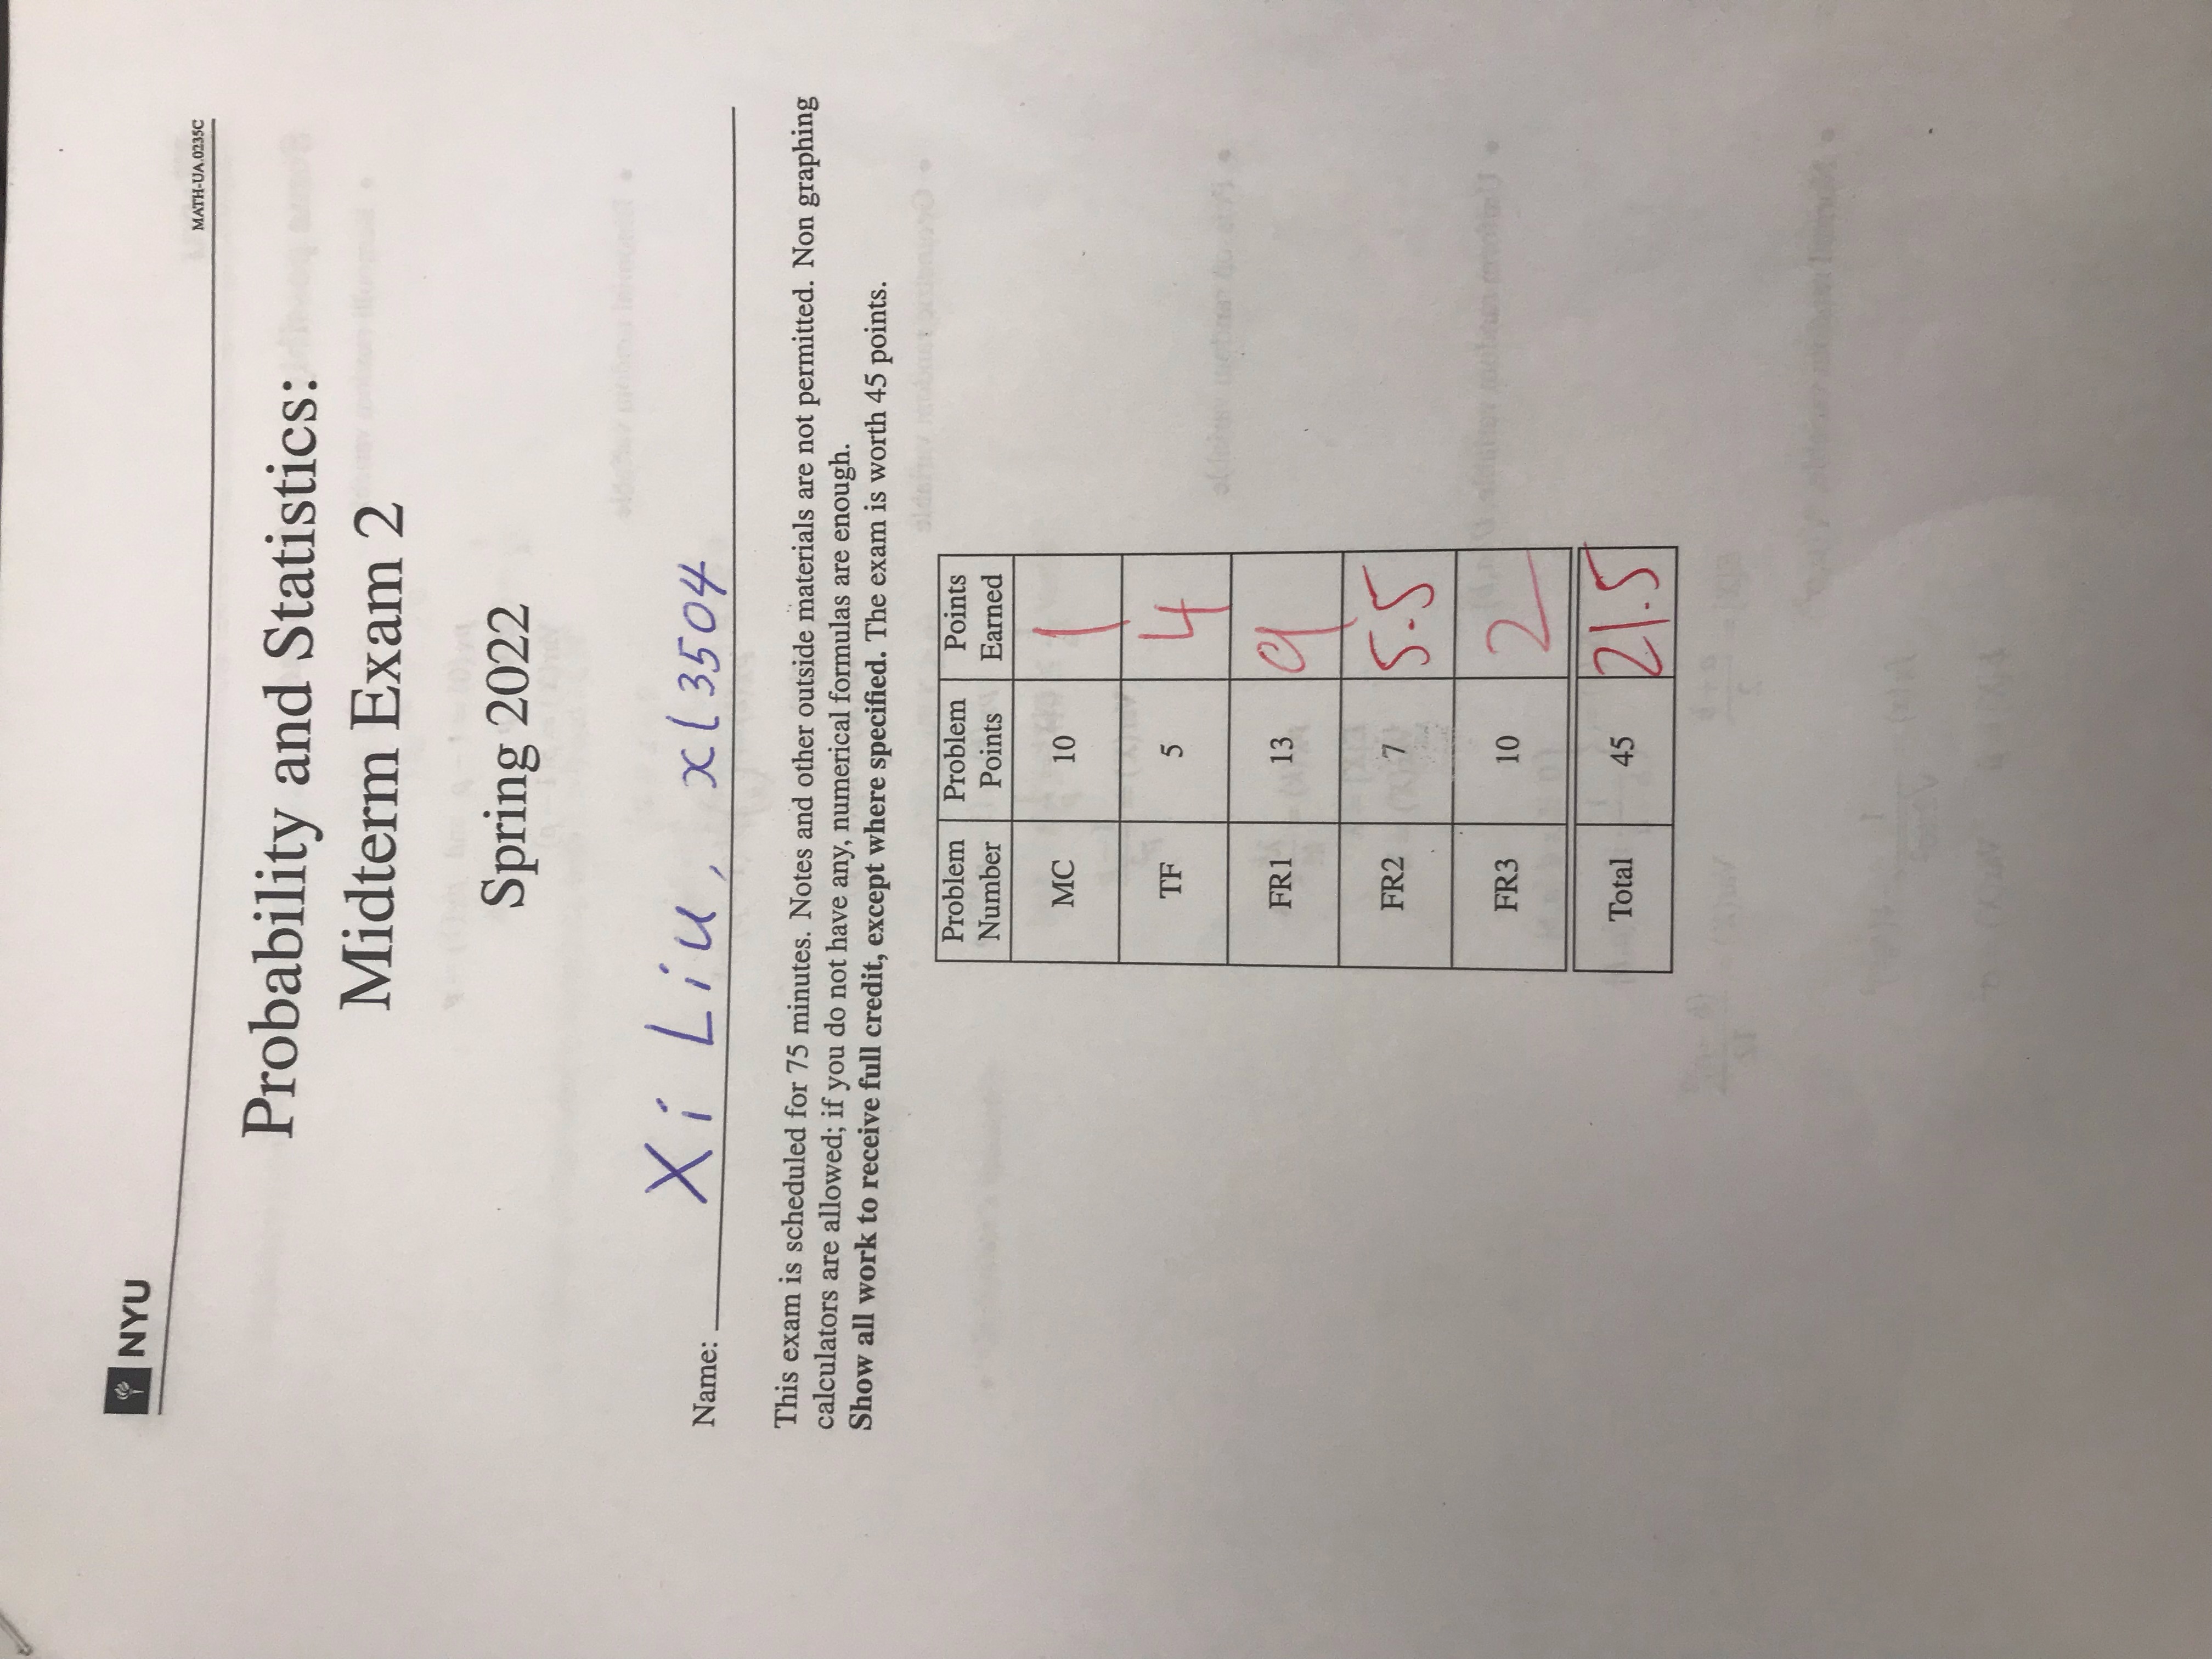 NYU
MATH-UA.0235C
Probability and Statistics:
Midterm Exam 2
Spring 2022
Name: Xi Liu, xl3504
This exam is scheduled for 75 minutes. Notes and other outside materials are not permitted. Non graphing
calculators are allowed; if you do not have any, numerical formulas are enough.
Show all work to receive full credit, except where specified. The exam is worth 45 points.
Problem Number Problem Points Points Earned
MC 10 1
TF 5 4
FR1 13 9
FR2 7 5.5
FR3 10 2
Total 45 21.5